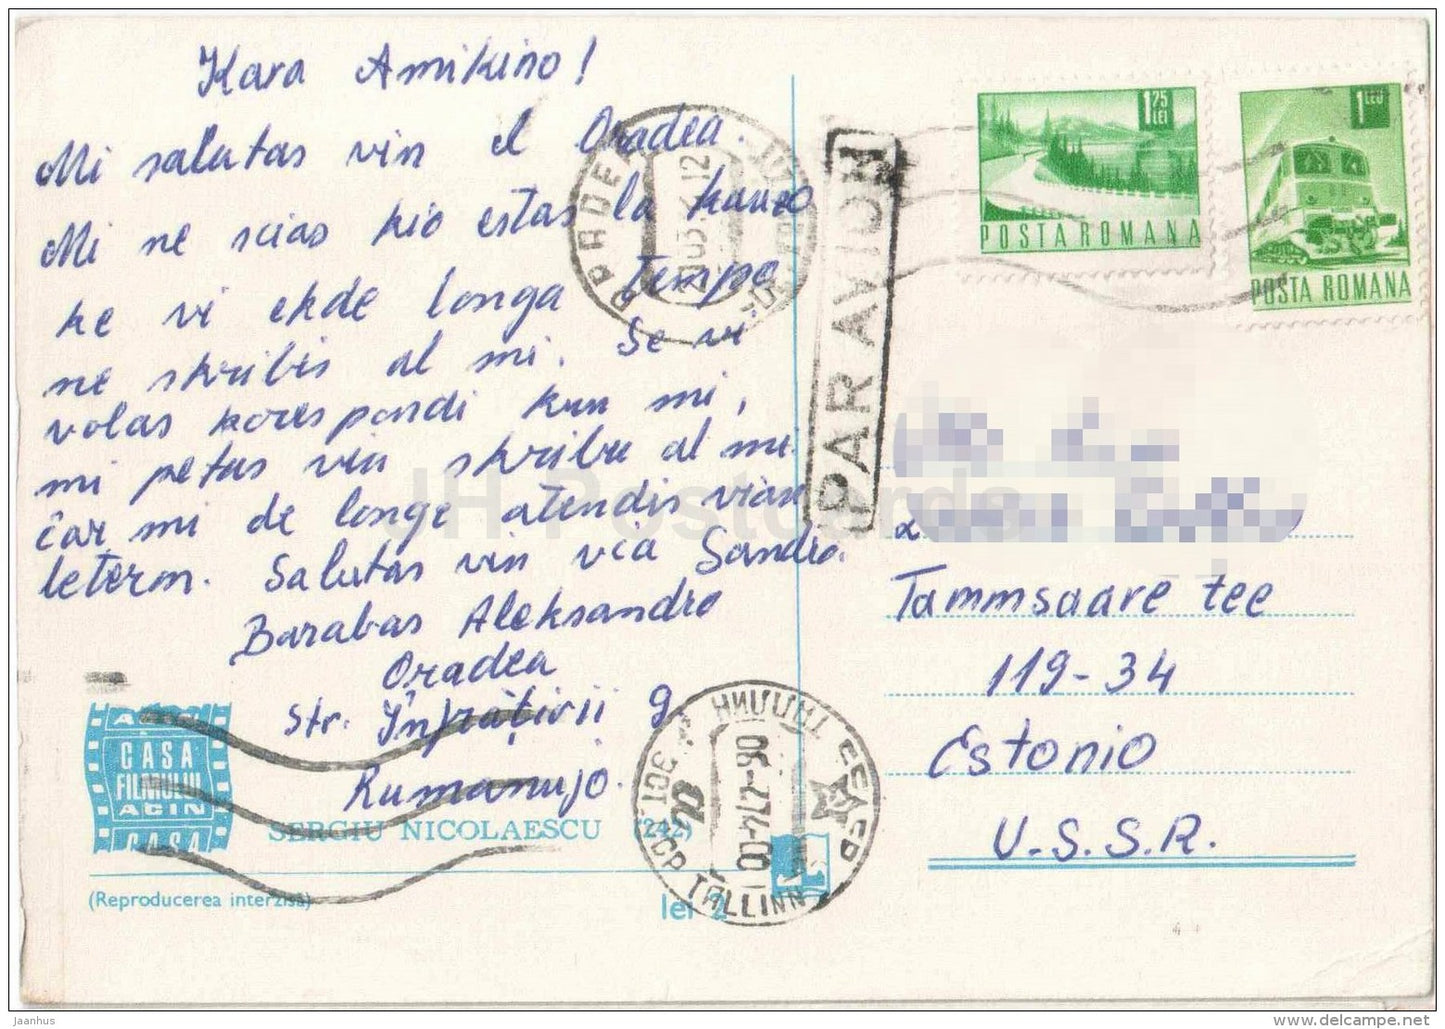 Kara Amikino!
Mi salutas vin el Oradea.
Mi ne scias kio estas la kauzo
ke vi ekde longa tempo
ne skribis al mi. Se vi
volas korespondi kun mi,
mi petas vin skribu al mi
ĉar mi de longe atendis vian
leteron. Salutas vin via Sandro.
Barabas Aleksandro
Oradea
str. Înfrațirii 9
Rumanujo.
CASA
FILMULUI
ACIN
CASA
SERGIU NICOLAESCU (242)
(Reproducerea interzisă)
lei 2
PAR AVION
1 25
LEI
POSTA ROMANA
1 LEU
POSTA ROMANA
Tammsaare tee
119-34
Estonio
U.S.S.R.
ORADEA
ТАЛЛИНН
TALLINN
JH Postcards
jaanhus
www.delcampe.net